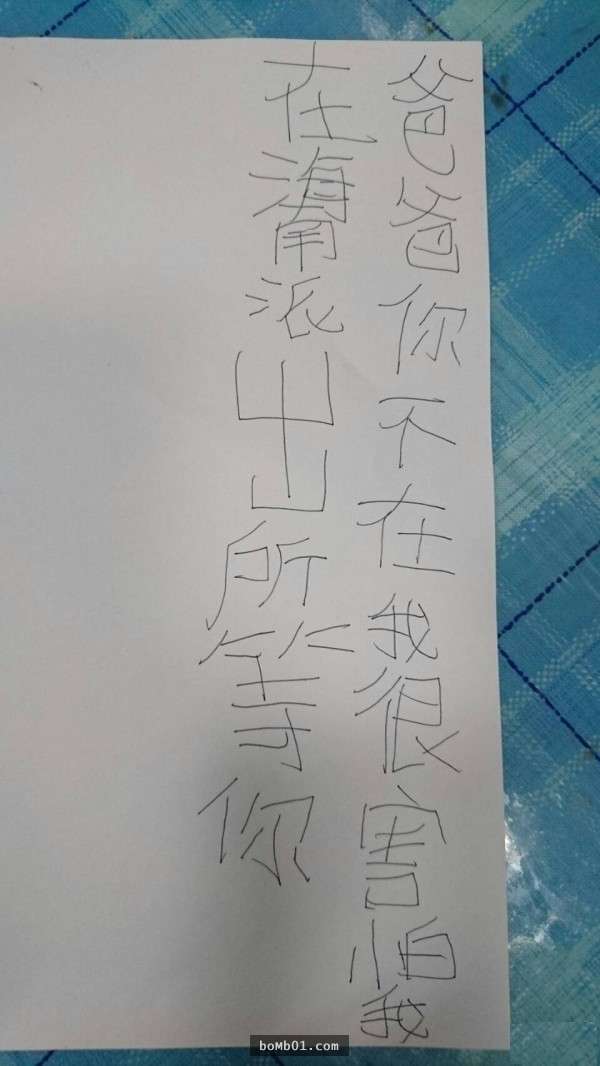 爸爸你不在我很害怕我
在海南派出所等你
boMb01.com